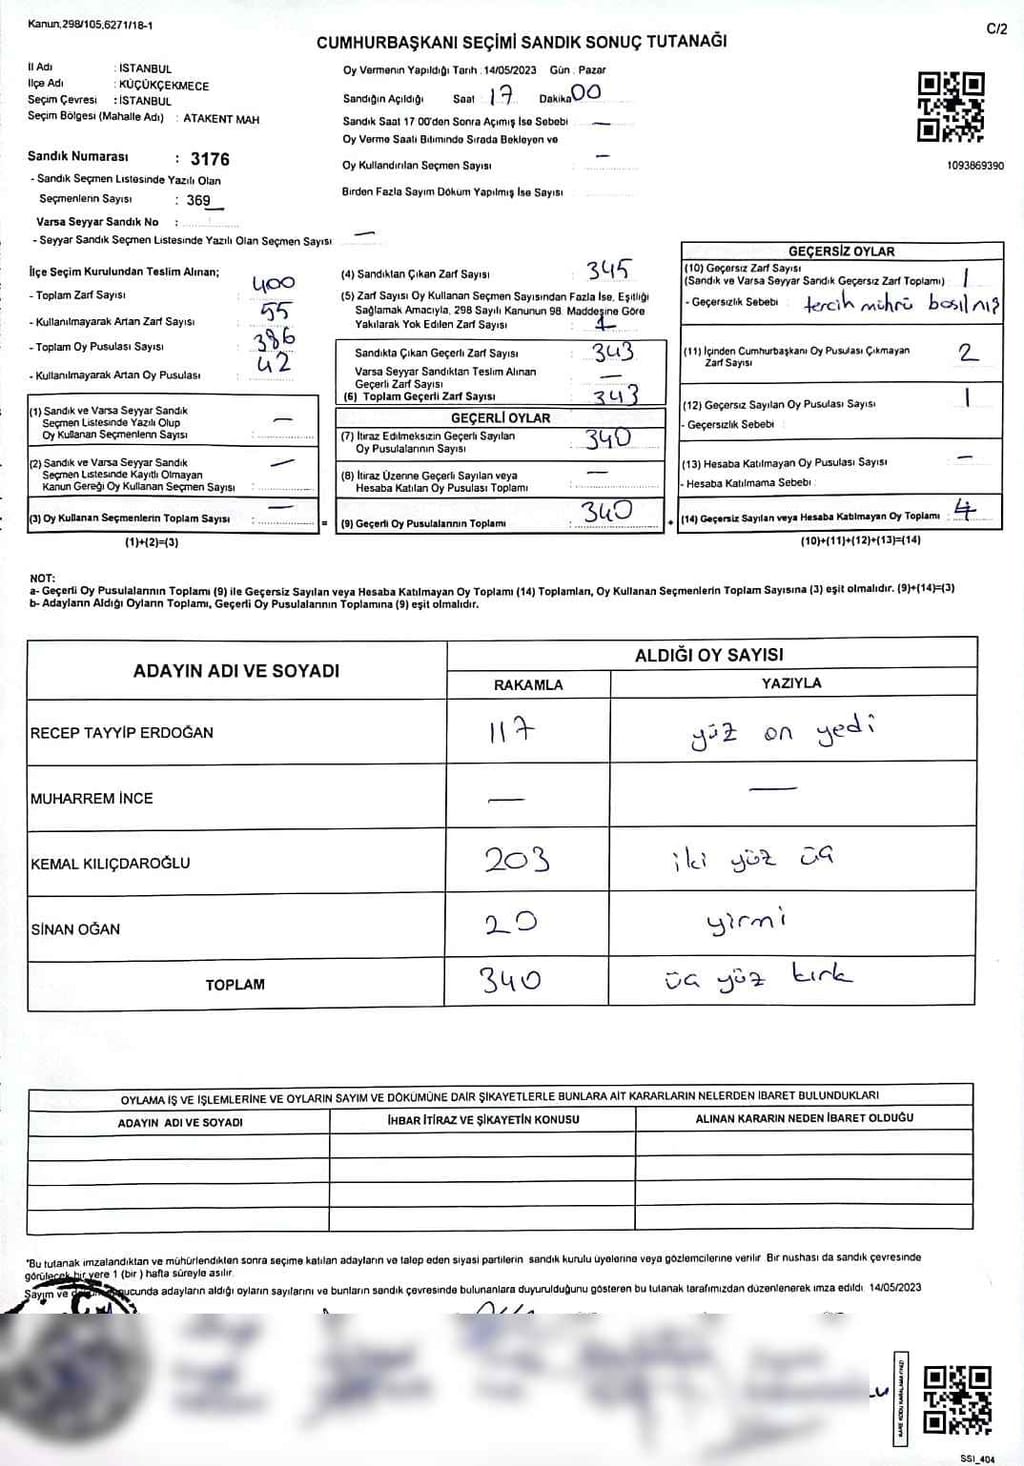 Kanun,298/105,6271/18-1
C/2
CUMHURBAŞKANI SEÇİMİ SANDIK SONUÇ TUTANAĞI
İl Adı : İSTANBUL
İlçe Adı : KÜÇÜKÇEKMECE
Seçim Çevresi : İSTANBUL
Seçim Bölgesi (Mahalle Adı) : ATAKENT MAH
Sandık Numarası : 3176
- Sandık Seçmen Listesinde Yazılı Olan
Seçmenlerin Sayısı : 369
Varsa Seyyar Sandık No :
- Seyyar Sandık Seçmen Listesinde Yazılı Olan Seçmen Sayısı —
Oy Vermenin Yapıldığı Tarih : 14/05/2023 Gün : Pazar
Sandığın Açıldığı Saat 17 Dakika 00
Sandık Saat 17 00'den Sonra Açımış İse Sebebi —
Oy Verme Saati Bitiminde Sırada Bekleyen ve
Oy Kullandırılan Seçmen Sayısı : —
Birden Fazla Sayım Döküm Yapılmış İse Sayısı
1093869390
İlçe Seçim Kurulundan Teslim Alınan;
- Toplam Zarf Sayısı : 400
- Kullanılmayarak Artan Zarf Sayısı : 55
- Toplam Oy Pusulası Sayısı : 386
- Kullanılmayarak Artan Oy Pusulası : 42
(1) Sandık ve Varsa Seyyar Sandık
Seçmen Listesinde Yazılı Olup
Oy Kullanan Seçmenlerin Sayısı : —
(2) Sandık ve Varsa Seyyar Sandık
Seçmen Listesinde Kayıtlı Olmayan
Kanun Gereği Oy Kullanan Seçmen Sayısı : —
(3) Oy Kullanan Seçmenlerin Toplam Sayısı : —
(1)+(2)=(3)
(4) Sandıktan Çıkan Zarf Sayısı : 345
(5) Zarf Sayısı Oy Kullanan Seçmen Sayısından Fazla İse, Eşitliği
Sağlamak Amacıyla, 298 Sayılı Kanunun 98. Maddesine Göre
Yakılarak Yok Edilen Zarf Sayısı :
Sandıkta Çıkan Geçerli Zarf Sayısı : 343
Varsa Seyyar Sandıktan Teslim Alınan
Geçerli Zarf Sayısı : —
(6) Toplam Geçerli Zarf Sayısı : 343
GEÇERLİ OYLAR
(7) İtiraz Edilmeksizin Geçerli Sayılan
Oy Pusulalarının Sayısı : 340
(8) İtiraz Üzerine Geçerli Sayılan veya
Hesaba Katılan Oy Pusulası Toplamı : —
= (9) Geçerli Oy Pusulalarının Toplamı : 340
GEÇERSİZ OYLAR
(10) Geçersiz Zarf Sayısı
(Sandık ve Varsa Seyyar Sandık Geçersiz Zarf Toplamı) 1
- Geçersizlik Sebebi : tercih mührü
(11) İçinden Cumhurbaşkanı Oy Pusulası Çıkmayan
Zarf Sayısı 2
(12) Geçersiz Sayılan Oy Pusulası Sayısı 1
- Geçersizlik Sebebi :
(13) Hesaba Katılmayan Oy Pusulası Sayısı —
- Hesaba Katılmama Sebebi :
+ (14) Geçersiz Sayılan veya Hesaba Katılmayan Oy Toplamı : 4
(10)+(11)+(12)+(13)=(14)
NOT:
a- Geçerli Oy Pusulalarının Toplamı (9) ile Geçersiz Sayılan veya Hesaba Katılmayan Oy Toplamı (14) Toplamları, Oy Kullanan Seçmenlerin Toplam Sayısına (3) eşit olmalıdır. (9)+(14)=(3)
b- Adayların Aldığı Oyların Toplamı, Geçerli Oy Pusulalarının Toplamına (9) eşit olmalıdır.
ADAYIN ADI VE SOYADI
ALDIĞI OY SAYISI
RAKAMLA YAZIYLA
RECEP TAYYİP ERDOĞAN 117 yüz on yedi
MUHARREM İNCE — —
KEMAL KILIÇDAROĞLU 203 iki yüz üç
SİNAN OĞAN 20 yirmi
TOPLAM 340 üç yüz kırk
OYLAMA İŞ VE İŞLEMLERİNE VE OYLARIN SAYIM VE DÖKÜMÜNE DAİR ŞİKAYETLERLE BUNLARA AİT KARARLARIN NELERDEN İBARET BULUNDUKLARI
ADAYIN ADI VE SOYADI İHBAR İTİRAZ VE ŞİKAYETİN KONUSU ALINAN KARARIN NEDEN İBARET OLDUĞU
*Bu tutanak imzalandıktan ve mühürlendikten sonra seçime katılan adayların ve talep eden siyasi partilerin sandık kurulu üyelerine veya gözlemcilerine verilir. Bir nushası da sandık çevresinde
görülecek bir yere 1 (bir) hafta süreyle asılır.
Sayım ve ucunda adayların aldığı oyların sayılarını ve bunların sandık çevresinde bulunanlara duyurulduğunu gösteren bu tutanak tarafımızdan düzenlenerek imza edildi. 14/05/2023
SSI_404